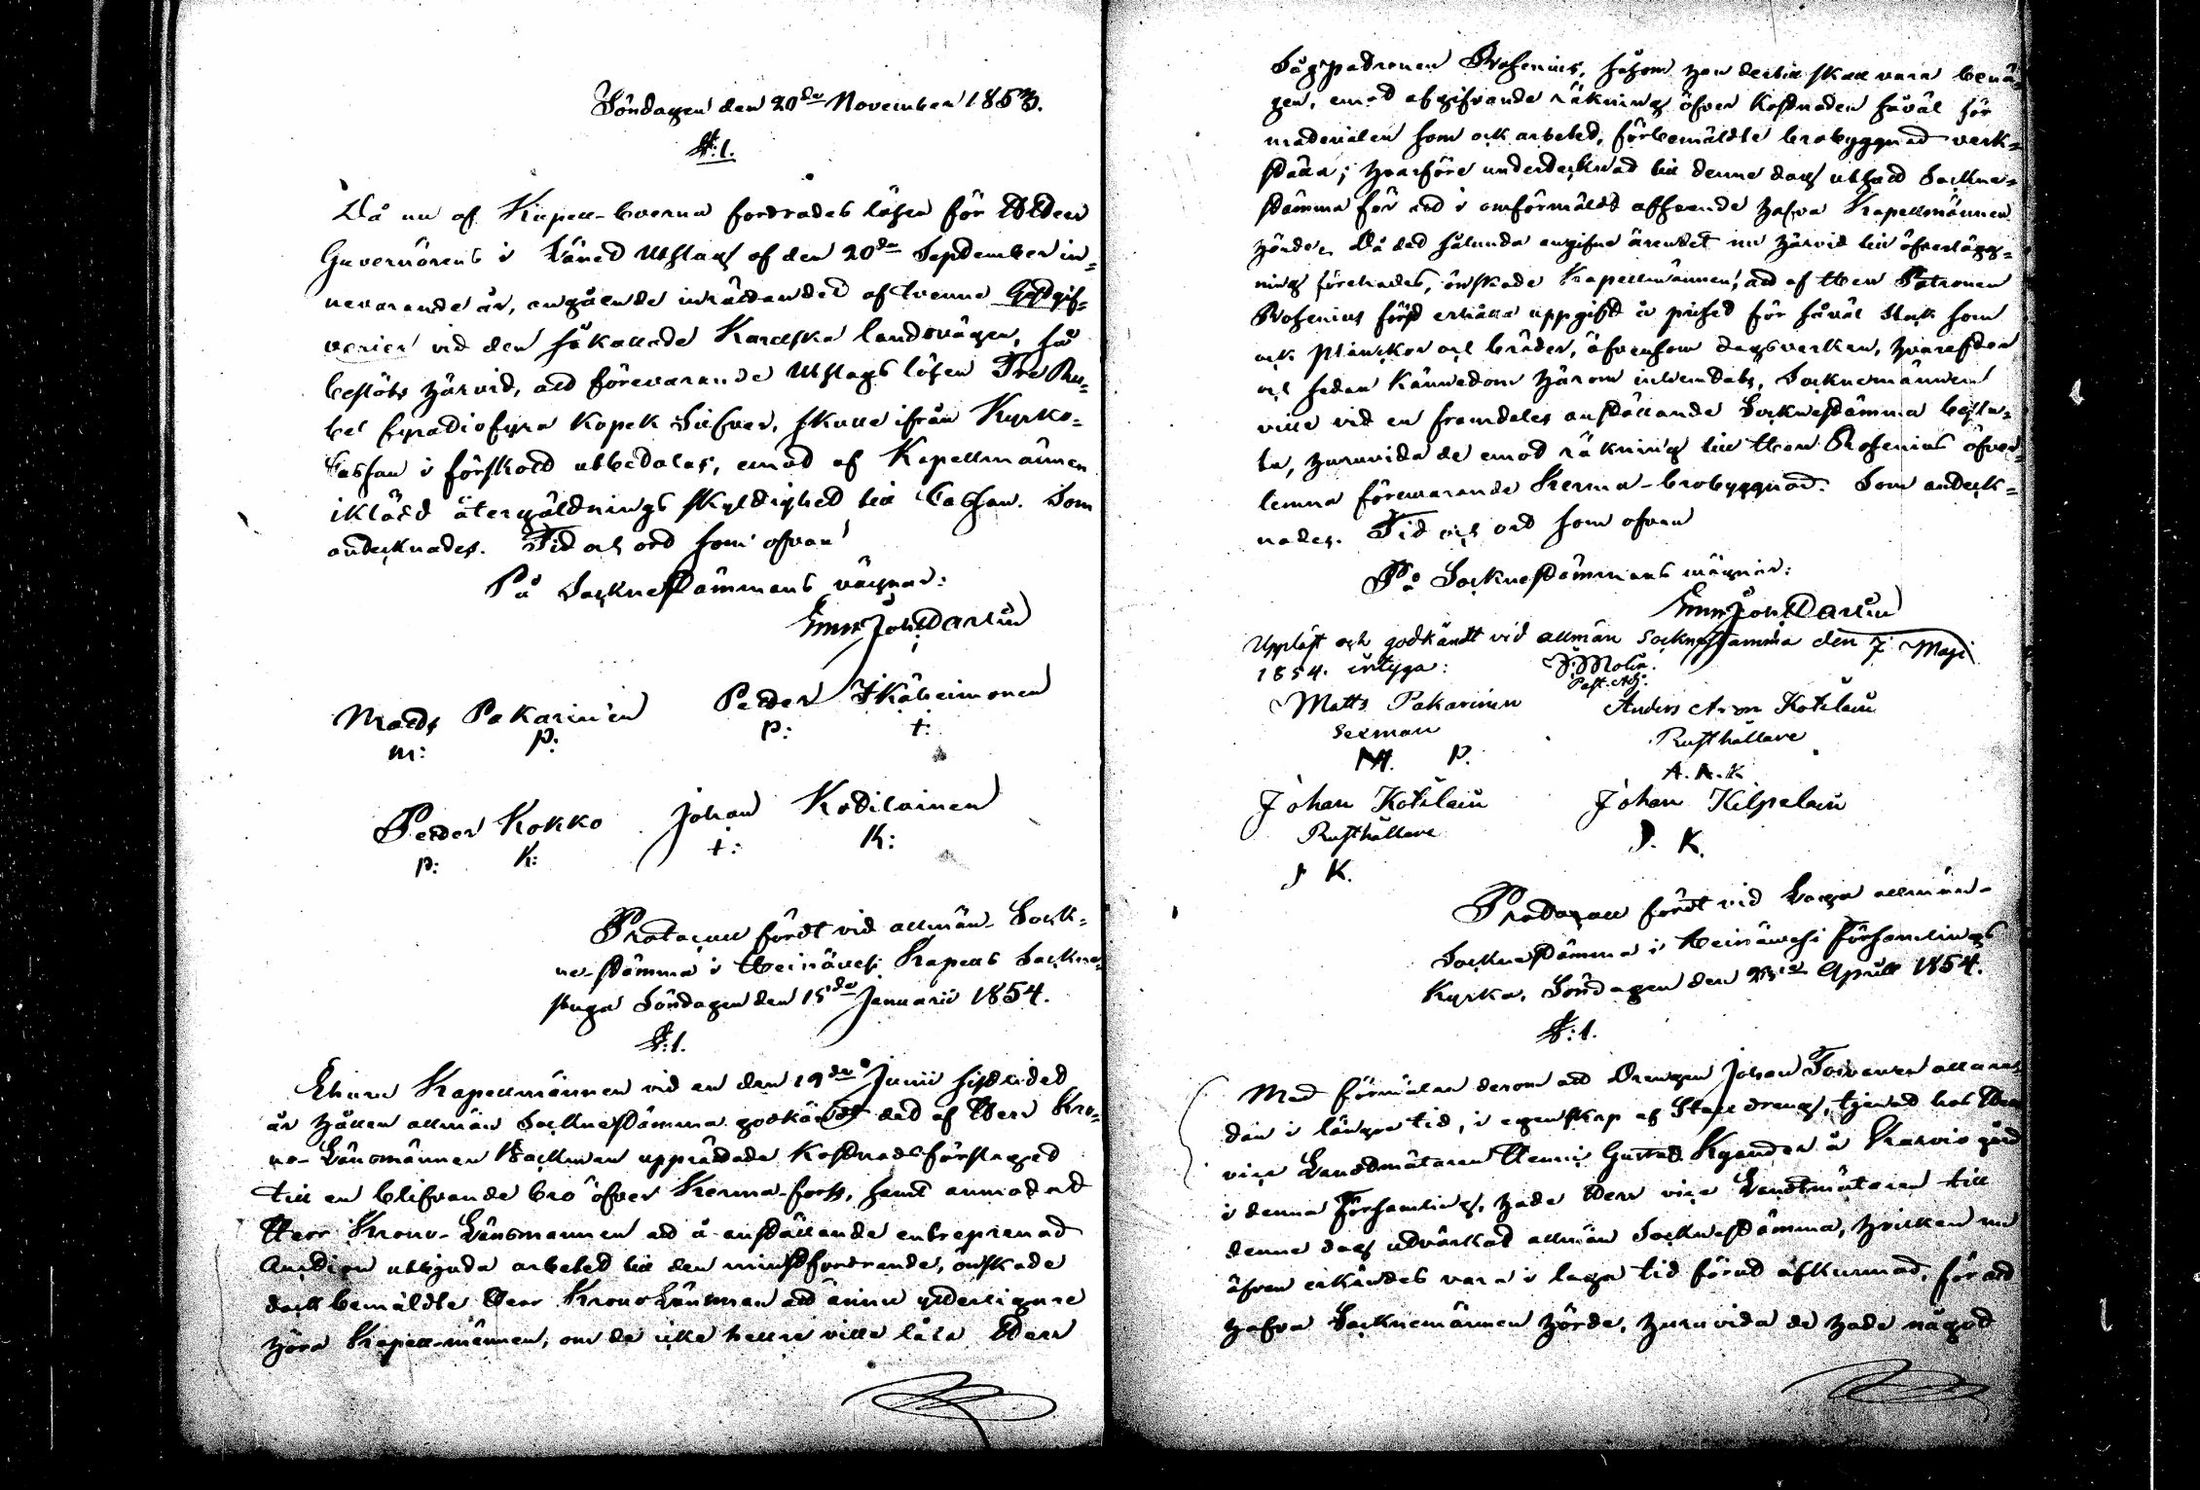 Söndagen den 20de November 1853.
§:1.
Då nu af Kapell-boerna fordrades lösen för Herr
Guvernörens i Länet Utslag af den 20de September in-
nevarande år, angående inrättandet af tvenne Gästgif-
verier vid den så kallade Karelska landsvägen, så
beslöts härvid, att förevarande Utslags lösen Tre Ru-
bel fyratiofyra Kopek Silfver, skulle ifrån Kyrko-
Cassan i förskott utbetalas, emot af Kapellmännen
iklädd återgäldnings skyldighet till Cassan. Som
antecknades. Tid och ort som ofvan
På Socknestämmans vägnar:
Joh Dahlin
Matts Pakarinen Petter Ikäheimonen
m: p: p: +:
Petter Kokko Johan Kotilainen
p: k: +: K:
Protocoll fördt vid allmän Sock-
ne-stämma i Heinävesi Kapells Sockne-
stuga Söndagen den 15de Januarii 1854.
§:1.
Ehuru Kapellmännen vid en den 19de Junii sistledet
år hållen allmän Socknestämma godkändt det af Herr Kro-
no-Länsmannen Backman upprättade Kostnadsförslaget
till en blifvande bro öfver Kerma-fors, samt anmodat
Herr Krono-Länsmannen att å anställande entreprenad
Auction utbjuda arbetet till den minstfordrande, önskade
dock bemäldte Herr Krono Länsman att ännu ytterligare
höra Kapell-männen, om de icke hellre ville låta Herr
Sågpatronen Rosenius, såsom han dertill skall vara benä-
gen, emot afgifvande räkning öfver Kostnaden såväl för
materialen som ock arbetet, förbemäldte brobyggnad verk-
ställa; hvarföre undertecknad till denne dag utsatt Sockne-
stämma för att i omförmäldt afseende hafva Kapellmännen
hörde. Då det sålunda angifne ärendet nu härvid till öfverlägg-
ning företrades, önskade Kapellmännen, att af Herr Patronen
Rosenius först erhålla uppgift å priset för såväl stock som
ock plankor och bräder, äfvensom dagsverken, hvarefter
och sedan kännedom härom inhemtats, Socknemännen
ville vid en framdeles anställande Socknestämma beslu-
ta, huruvida de emot räkning till Herr Rosenius öfver-
lemna förevarande Kerma-brobyggnad. Som anteck-
nades. Tid och ort som ofvan
På Socknestämmans vägnar:
Joh Dahlin
Uppläst och godkändt vid allmän Socknestämma den 7 Maji
1854. intyga: Molin.
Past. Adj:
Matts Pakarinen Anders Aron Kotilain
Sexman Rusthållare
M. P. A. A. K
Johan Kotilain Johan Kilpelain
Rusthållare J. K.
J K.
Protocoll fördt vid Laga allmän
Socknestämma i Heinävesi Församlings
Kyrka, Söndagen den Aprill 1854.
§:1.
Med förmälan derom att Drengen Johan Toivanen allare-
dan i längre tid, i egenskap af Stalldreng, tjenat hos Herr
vice Landtmätaren Henric Gustaf Kyander å Karvio gård
i denna Församling, hade Herr vice Landtmätaren till
denne dag utvärkat allmän Socknestämma, hvilken nu
äfven erkändes vara i laga tid förut afkunnad, för att
hafva Socknemännen hörde, huruvida de hade något